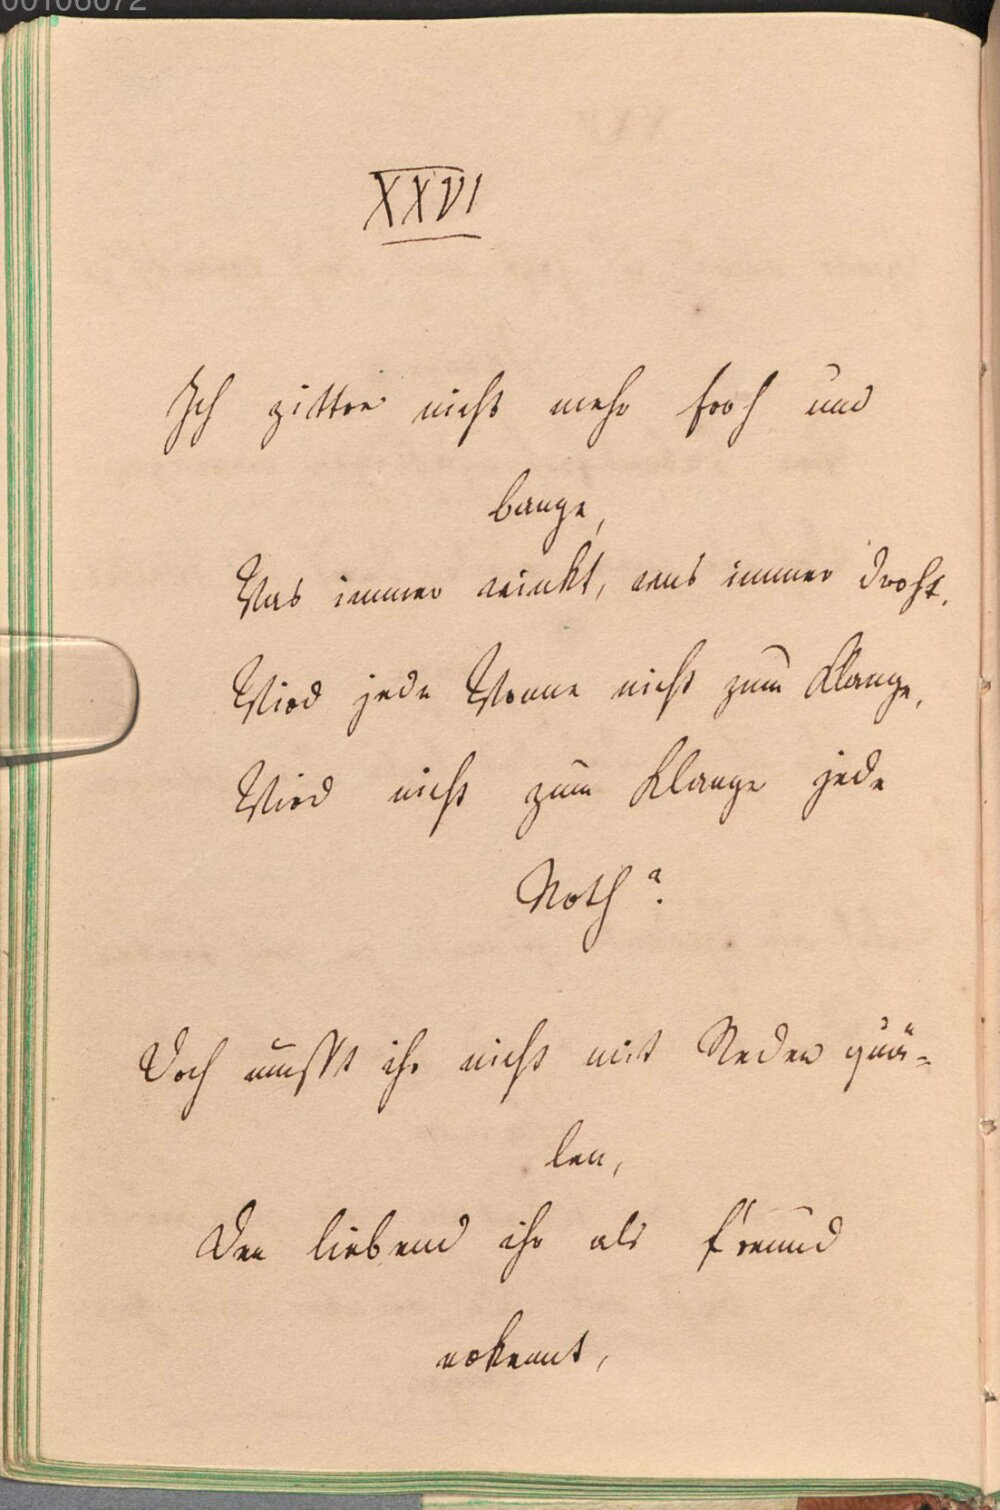 00106072
XXVI
Ich zittre nicht mehr froh und
bange,
Was immer winkt, was immer droht.
Wird jede Wonne nicht zum Klange,
Wird nicht zum Klange jede
Noth?
Doch müßt ihr nicht mit Reden quä-
len,
Den liebend ihr als Freund
erkennt,